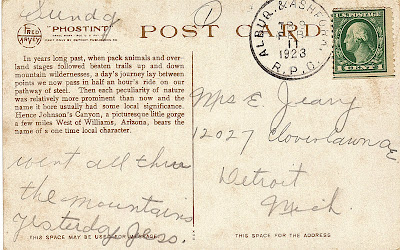 Sunday
FRED HARVEY
"PHOSTINT"
POST CARD
In years long past, when pack animals and over-
land stages followed beaten trails up and down
mountain wildernesses, a day's journey lay between
points we now pass in half an hour's ride on our
pathway of steel. Then each peculiarity of nature
was relatively more prominent than now and the
name it bore usually had some local significance.
Hence Johnson's Canyon, a picturesque little gorge
a few miles West of Williams, Arizona, bears the
name of a one time local character.
went all thru
the mountains
Yesterday
THIS SPACE MAY BE USED FOR MESSAGE
ALBUR. & ASHFORK
FEB
11
1923
R.P.O.
Mrs E.
12027 Cloverlawn
Detroit
Mich.
THIS SPACE FOR THE ADDRESS